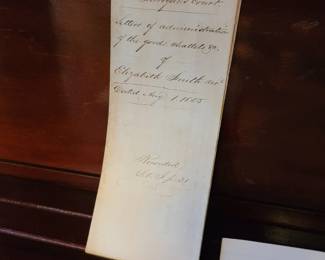 Court
Letters of administration
of the goods chattels &c.
of
Elizabeth Smith dec^d
Dated Aug 1. 1865
Recorded